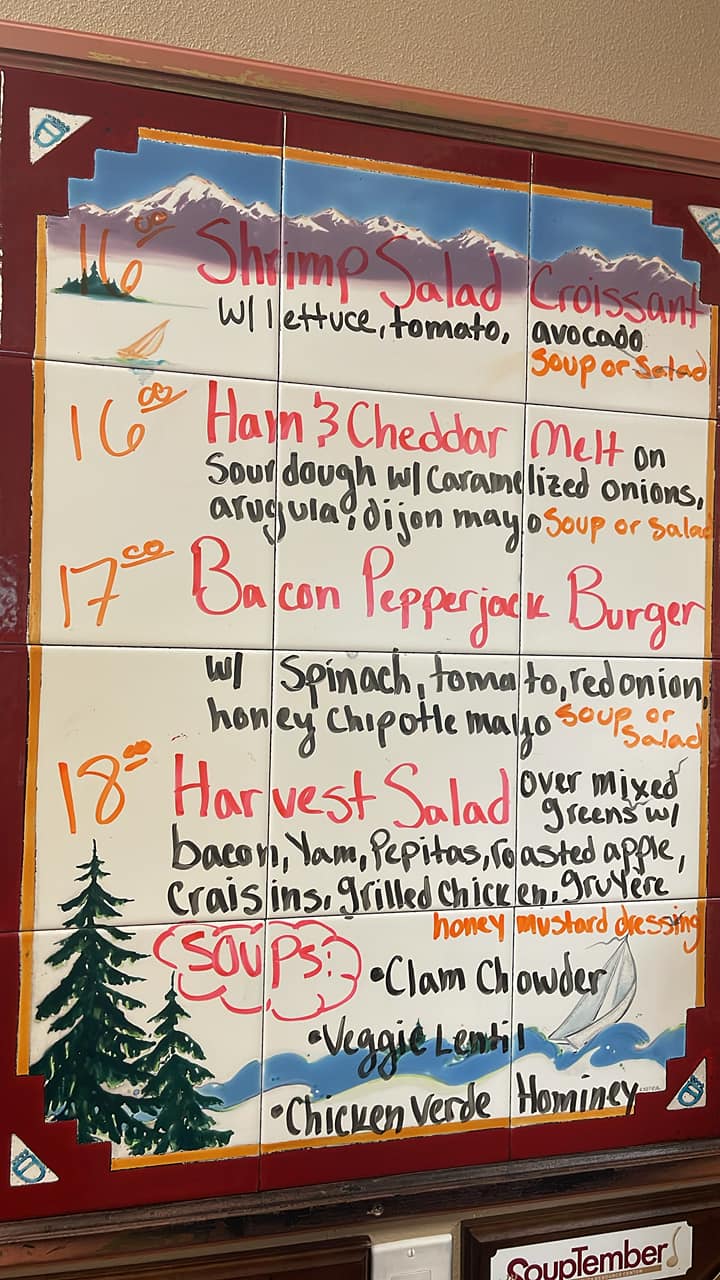 16⁰⁰ Shrimp Salad Croissant
w/ lettuce, tomato, avocado
Soup or Salad
16⁰⁰ Ham & Cheddar Melt on
Sourdough w/ Caramelized onions,
arugula, dijon mayo Soup or Salad
17⁰⁰ Bacon Pepperjack Burger
w/ Spinach, tomato, red onion,
honey Chipotle mayo Soup or
Salad
18⁰⁰ Harvest Salad over mixed
greens w/
bacon, Yam, Pepitas, roasted apple,
Craisins, grilled chicken, gruyere
honey mustard dressing
SOUPS:
•Clam Chowder
•Veggie Lentil
•Chicken Verde Hominey
SoupTember